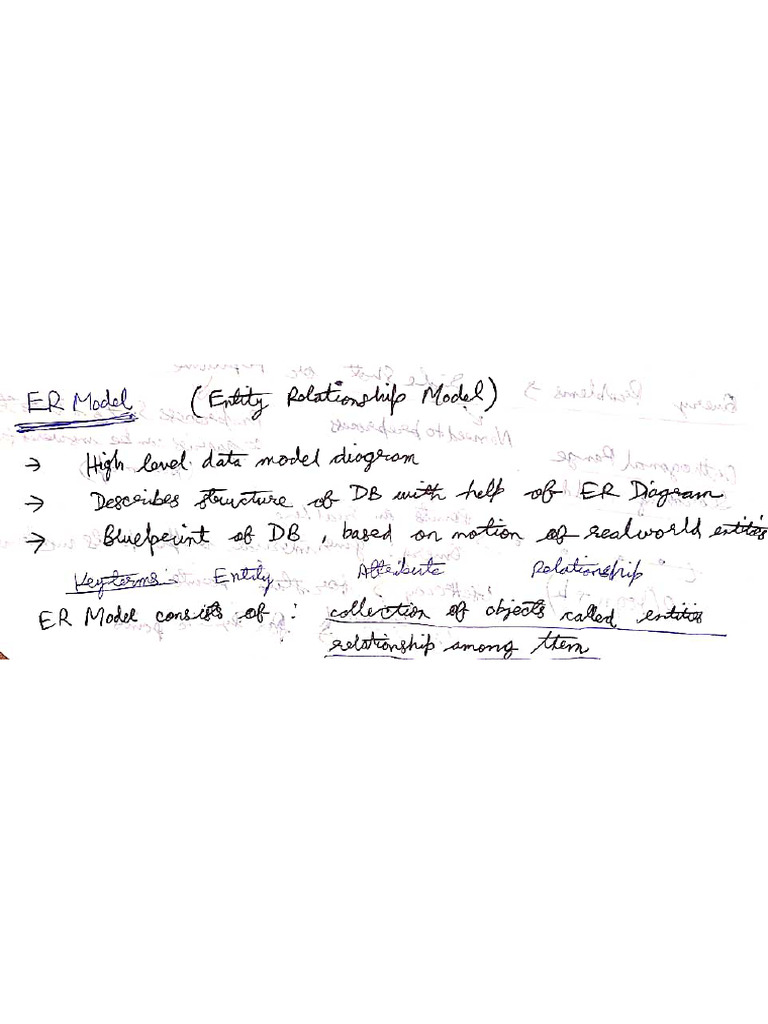 ER Model (Entity Relationship Model)
→ High level data model diagram
→ Describes structure of DB with help of ER Diagram
→ Blueprint of DB, based on notion of real world entities
Key terms - Entity Attribute Relationship
ER Model consists of : collection of objects called entities
relationship among them